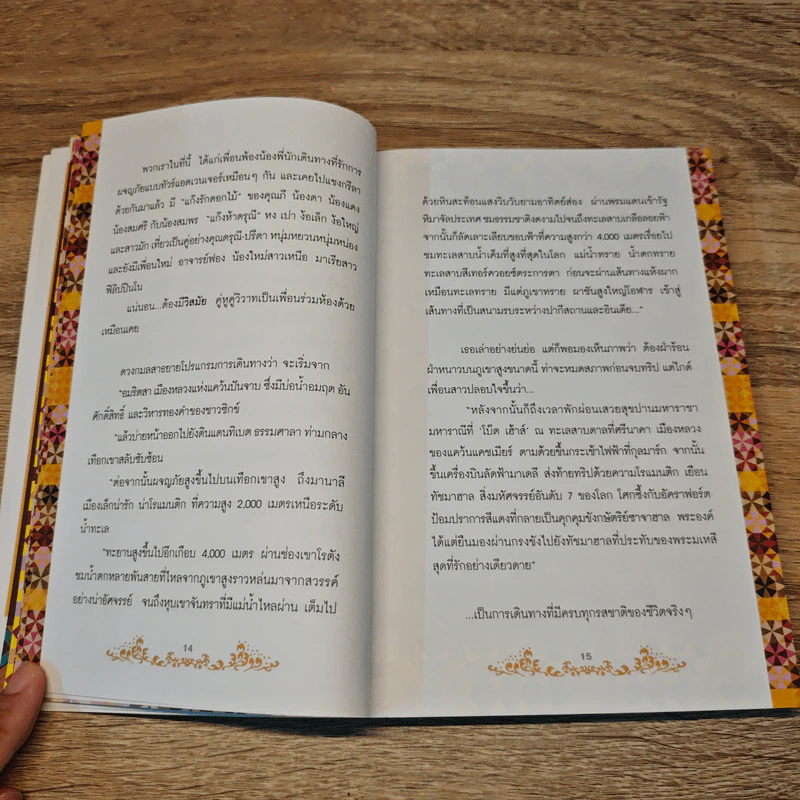 พวกเราในที่นี้ ได้แก่เพื่อนพ้องน้องพี่นักเดินทางที่รักการ
ผจญภัยแบบทัวร์แอดเวนเจอร์เหมือนๆ กัน และเคยไปแชงกรีลา
ด้วยกันมาแล้ว มี “แก๊งรักดอกไม้” ของคุณภี น้องดา น้องแดง
น้องสมศรี กับน้องสมพร “แก๊งห้าดรุณี” หง เปา ง้อเล็ก ง้อใหญ่
และสาวมัก เที่ยวเป็นคู่อย่างคุณดรุณี-ปรีดา หนุ่มหยวนหนุ่มหน่อง
และยังมีเพื่อนใหม่ อาจารย์ฟอง น้องใหม่สาวเหนือ มาเรียสาว
ฟิลิปปินโน
แน่นอน...ต้องมีวิสมัย คู่หูคู่วิวาทเป็นเพื่อนร่วมห้องด้วย
เหมือนเคย
ดวงกมลสาธยายโปรแกรมการเดินทางว่า จะเริ่มจาก
“อมริตสา เมืองหลวงแห่งแคว้นปันจาบ ซึ่งมีบ่อน้ำอมฤต อัน
ศักดิ์สิทธิ์ และวิหารทองคำของชาวซิกข์
“แล้วบ่ายหน้าออกไปยังดินแดนทิเบต ธรรมศาลา ท่ามกลาง
เทือกเขาสลับซับซ้อน
“ต่อจากนั้นผจญภัยสูงขึ้นไปบนเทือกเขาสูง ถึงมานาลี
เมืองเล็กน่ารัก น่าโรแมนติก ที่ความสูง 2,000 เมตรเหนือระดับ
น้ำทะเล
“ทะยานสูงขึ้นไปอีกเกือบ 4,000 เมตร ผ่านช่องเขาโรตัง
ชมน้ำตกหลายพันสายที่ไหลจากภูเขาสูงราวหล่นมาจากสวรรค์
อย่างน่าอัศจรรย์ จนถึงหุบเขาจันทราที่มีแม่น้ำไหลผ่าน เต็มไป
14
ด้วยหินสะท้อนแสงวิบวับยามอาทิตย์ส่อง ผ่านพรมแดนเข้ารัฐ
หิมาจัลประเทศ ชมธรรมชาติงดงามไปจนถึงทะเลสาบเกลือลอยฟ้า
จากนั้นก็ลัดเลาะเลียบขอบฟ้าที่ความสูงกว่า 4,000 เมตรเรื่อยไป
ชมทะเลสาบน้ำเค็มที่สูงที่สุดในโลก แม่น้ำทราย น้ำตกทราย
ทะเลสาบสีเทอร์ควอยซ์ตระการตา ก่อนจะผ่านเส้นทางแห้งมาก
เหมือนทะเลทราย มีแต่ภูเขาทราย ผาชันสูงใหญ่โอฬาร เข้าสู่
เส้นทางที่เป็นสนามรบระหว่างปากีสถานและอินเดีย...”
เธอเล่าอย่างย่นย่อ แต่ก็พอมองเห็นภาพว่า ต้องฝ่าร้อน
ฝ่าหนาวบนภูเขาสูงขนาดนี้ ท่าจะหมดสภาพก่อนจบทริป แต่ไกด์
เพื่อนสาวปลอบใจขึ้นว่า...
“หลังจากนั้นก็ถึงเวลาพักผ่อนเสวยสุขปานมหาราชา
มหาราณีที่ ‘โบ๊ต เฮ้าส์’ ณ ทะเลสาบดาลที่ศรีนาคา เมืองหลวง
ของแคว้นแคชเมียร์ ตามด้วยขึ้นกระเช้าไฟฟ้าที่กุลมาร์ก จากนั้น
ขึ้นเครื่องบินลัดฟ้ามาเดลี ส่งท้ายทริปด้วยความโรแมนติก เยือน
ทัชมาฮาล สิ่งมหัศจรรย์อันดับ 7 ของโลก โศกซึ้งกับอัคราฟอร์ต
ป้อมปราการสีแดงที่กลายเป็นคุกคุมขังกษัตริย์ชาจาฮาล พระองค์
ได้แต่ยืนมองผ่านกรงขังไปยังทัชมาฮาลที่ประทับของพระมเหสี
สุดที่รักอย่างเดียวดาย”
...เป็นการเดินทางที่มีครบทุกรสชาติของชีวิตจริงๆ
15